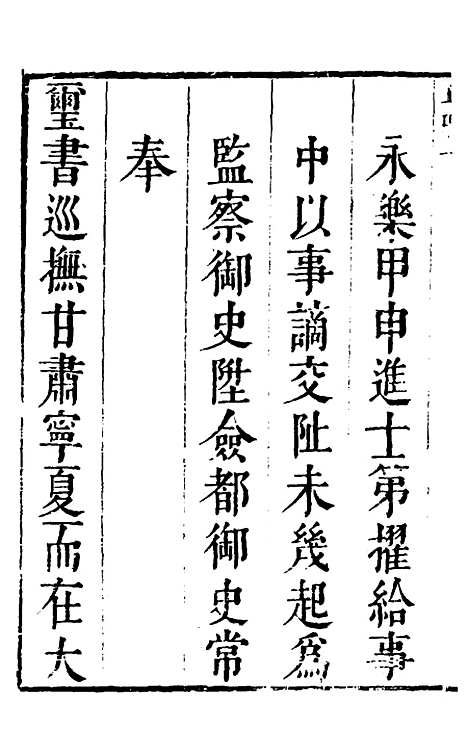 永樂甲申進士第擢給事
中以事謫交阯未幾起爲
監察御史陞僉都御史常
奉
璽書巡撫甘肅寧夏而在大